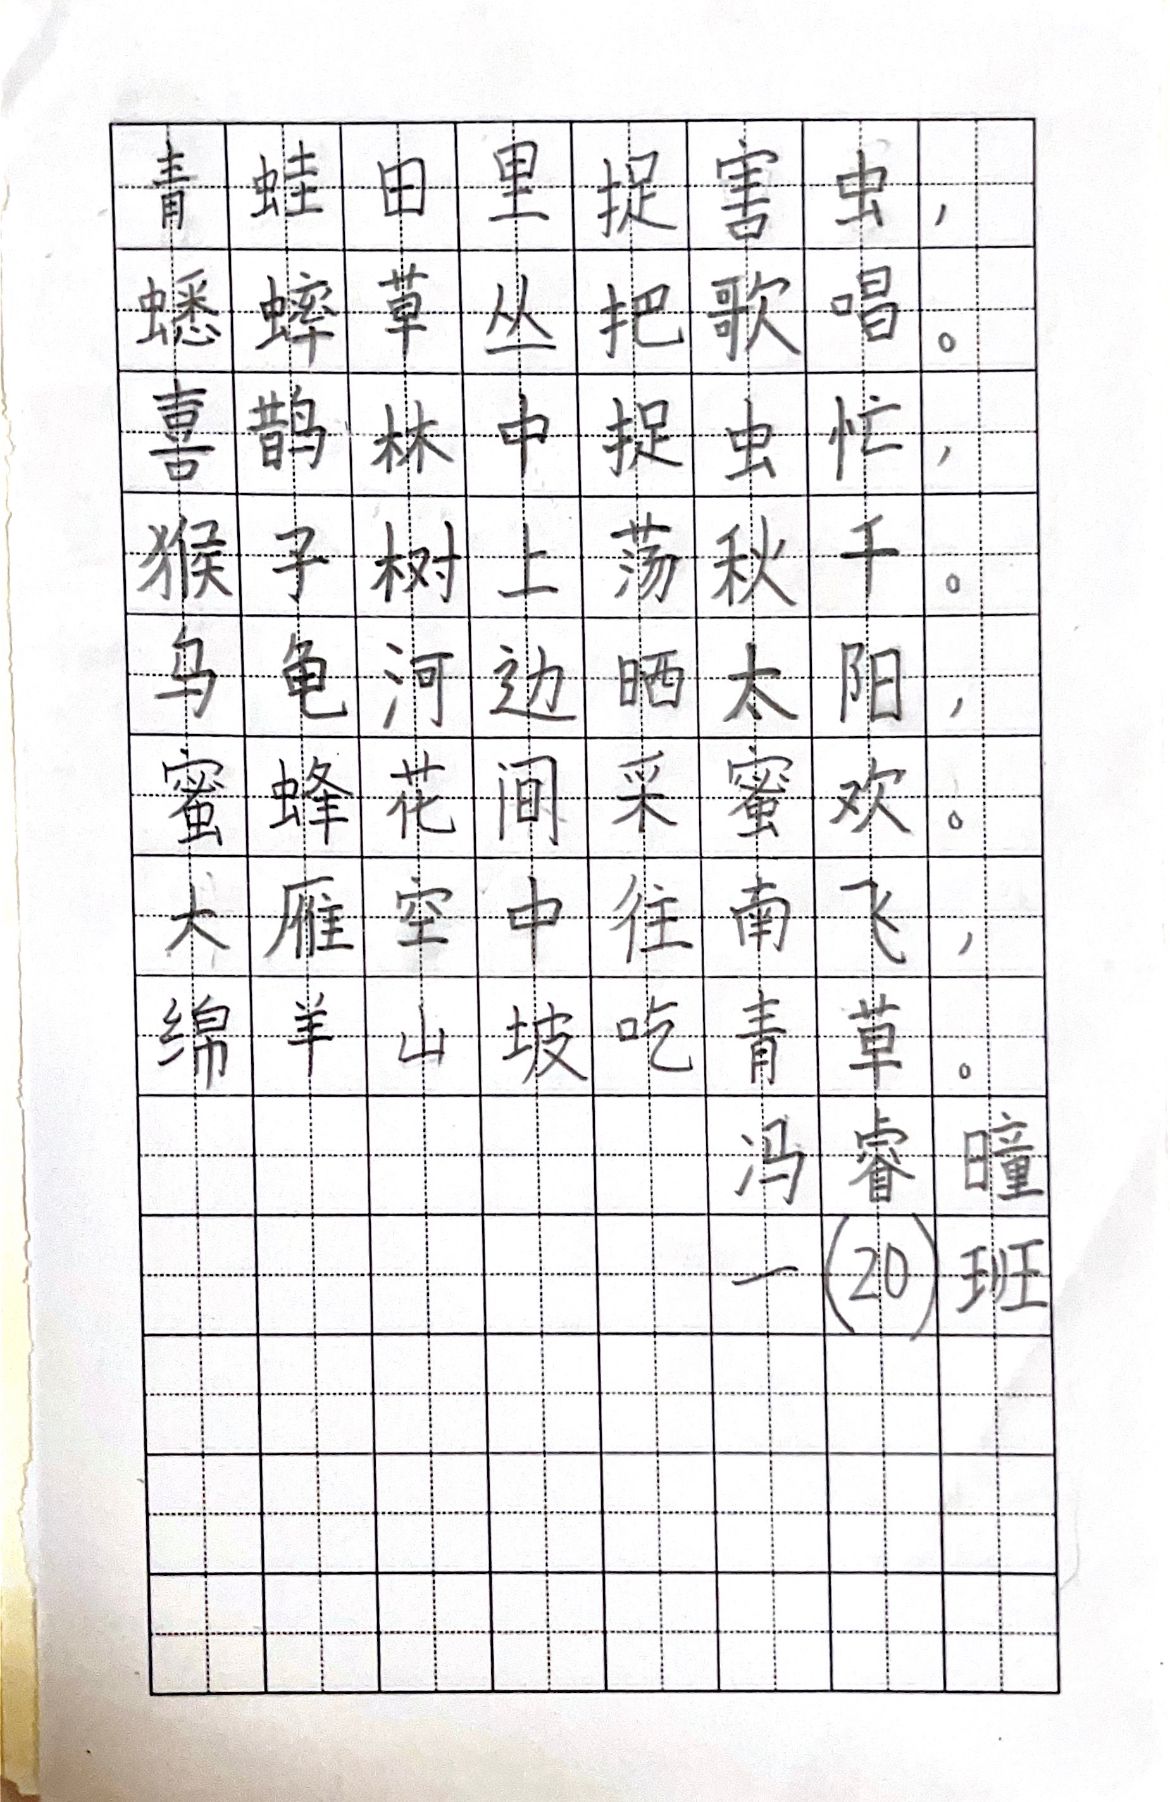 青蛙田里捉害虫，
蟋蟀草丛把歌唱。
喜鹊林中捉虫忙，
猴子树上荡秋千。
乌龟河边晒太阳，
蜜蜂花间采蜜欢。
大雁空中往南飞，
绵羊山坡吃青草。
冯睿曈
一(20)班